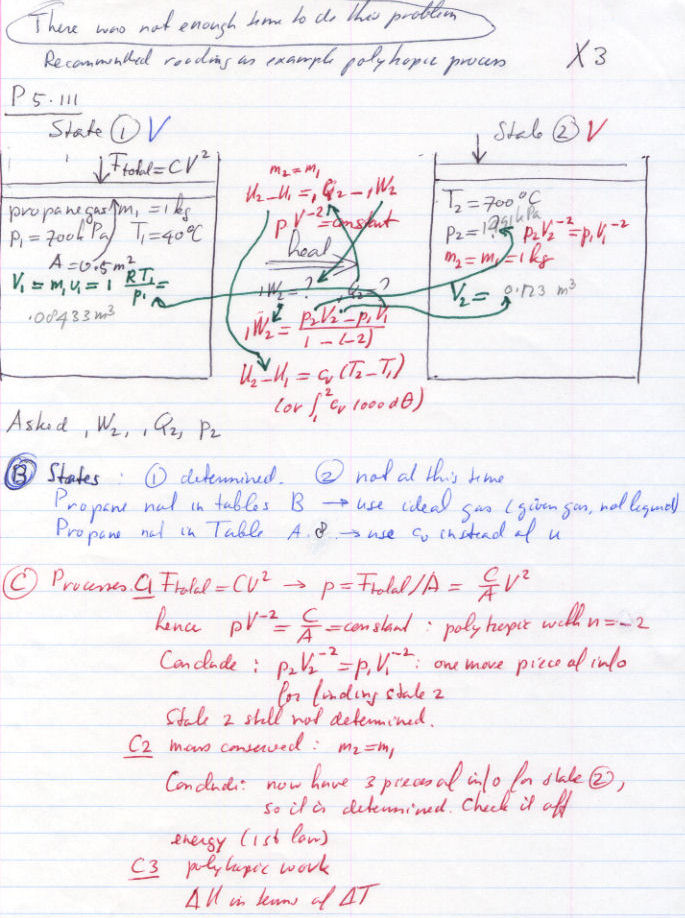 There was not enough time to do this problem
Recommended reading as example polytropic process X3
P 5.111
State ① V
State ② V
F_total = CV²
propane gas m₁ = 1 kg
P₁ = 700 kPa T₁ = 40°C
A = 0.5 m²
V₁ = m₁ v₁ = 1 RT₁/P₁ =
.08433 m³
m₂ = m₁
U₂ - U₁ = ₁Q₂ - ₁W₂
p V⁻² = constant
heat
₁W₂ = ? ₁Q₂ = ?
₁W₂ = (p₂V₂ - p₁V₁)/(1 - (-2))
U₂ - U₁ = c_v (T₂ - T₁)
(or ∫₁² c_v 1000 dθ)
T₂ = 700°C
P₂ = ? kPa p₂V₂⁻² = p₁V₁⁻²
m₂ = m₁ = 1 kg
V₂ = 0.123 m³
Asked ₁W₂, ₁Q₂, p₂
Ⓑ States : ① determined. ② not at this time
Propane not in tables B → use ideal gas (given gas, not liquid)
Propane not in Table A.8 → use c_v instead of u
Ⓒ Processes. C1 F_total = CV² → p = F_total/A = C/A V²
hence pV⁻² = C/A = constant : polytropic with n = -2
Conclude : p₂V₂⁻² = p₁V₁⁻² : one more piece of info
for finding state 2
State 2 still not determined.
C2 mass conserved : m₂ = m₁
Conclude: now have 3 pieces of info for state ②,
so it is determined. Check it off
energy (1st law)
C3 polytropic work
ΔU in terms of ΔT